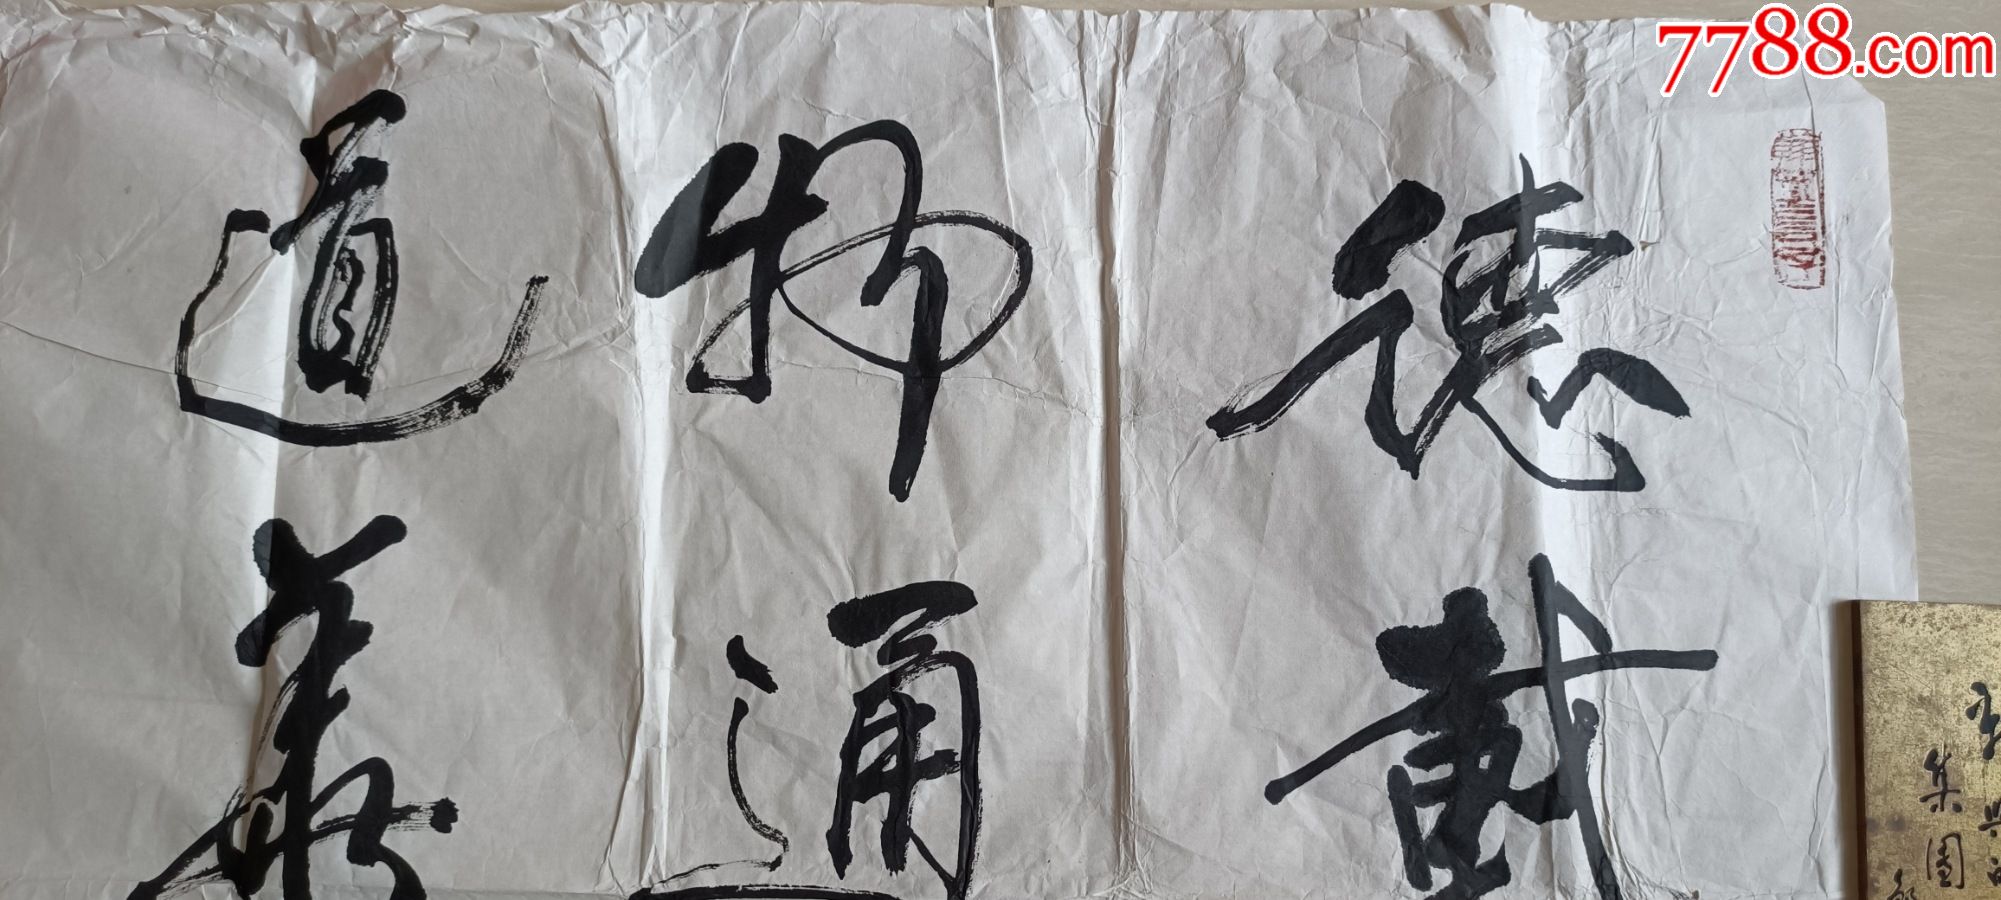 7788.com
德載
物通
道義
集團